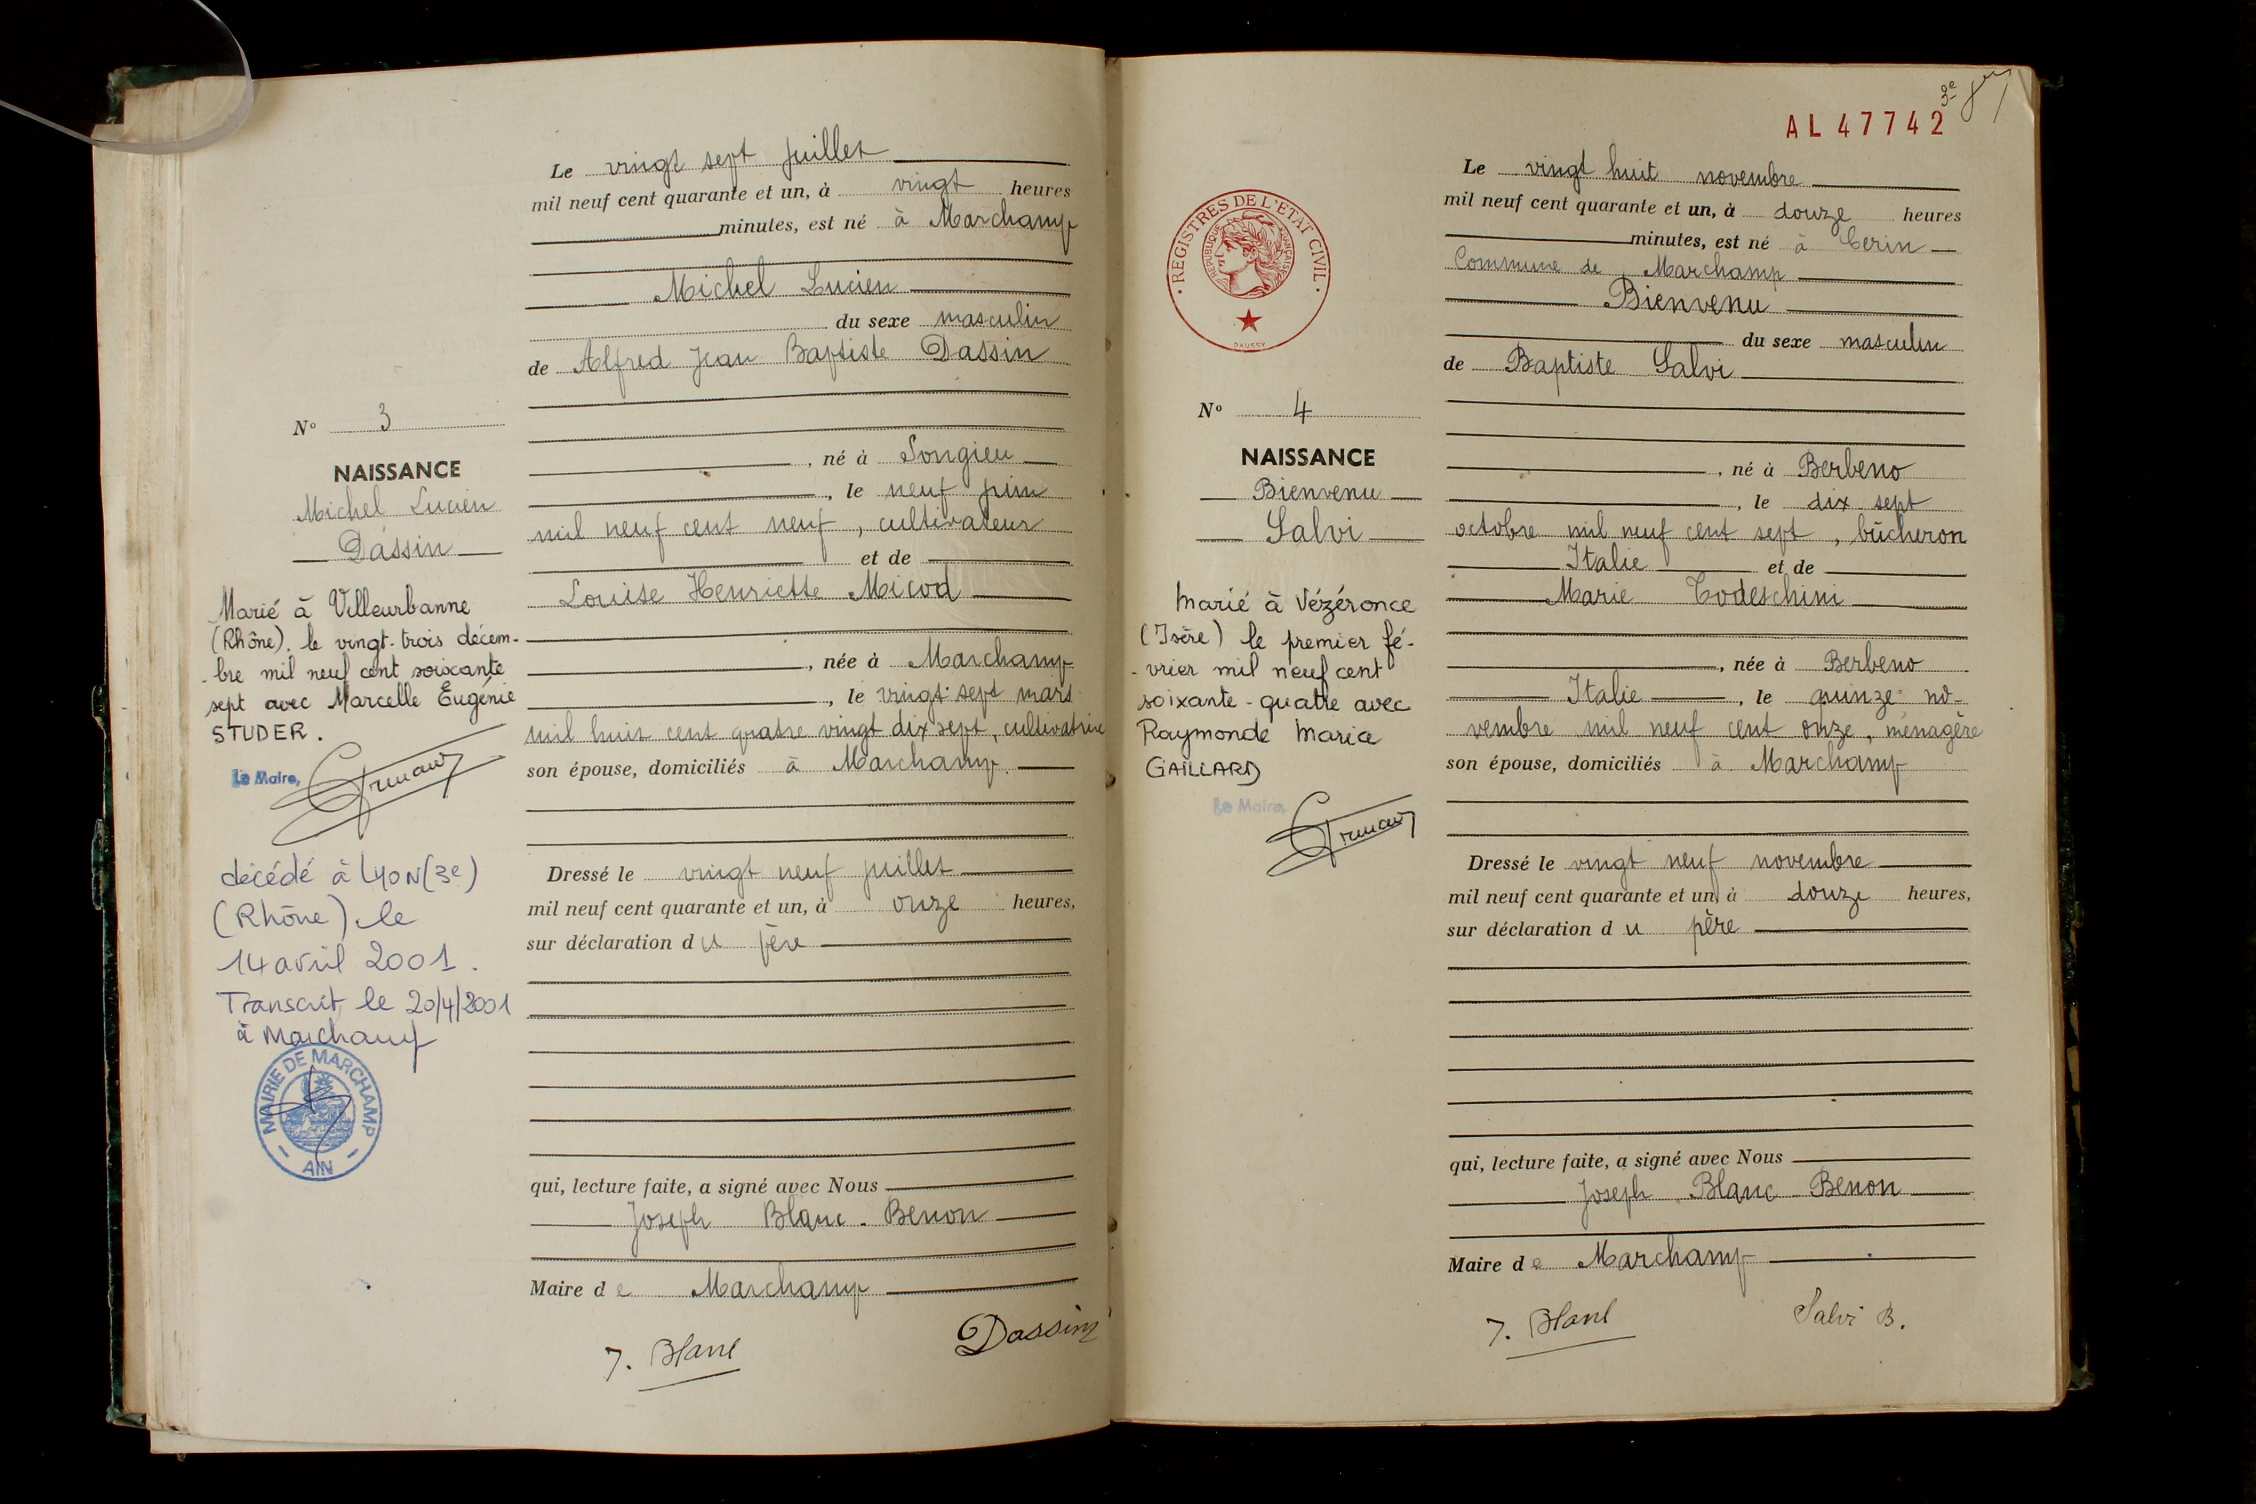 Le vingt sept juillet
mil neuf cent quarante et un, à vingt heures
minutes, est né à Marchamp
Michel Lucien
du sexe masculin
de Alfred Jean Baptiste Dassin
N° 3
, né à Songieu
NAISSANCE
, le neuf juin
Michel Lucien
mil neuf cent neuf, cultivateur
Dassin
et de
Louise Henriette Micod
Marié à Villeurbanne
(Rhône). le vingt-trois décem-
-bre mil neuf cent soixante
sept avec Marcelle Eugénie
STUDER.
Le Maire,
, née à Marchamp
, le vingt-sept mars
mil huit cent quatre vingt dix sept, cultivatrice
son épouse, domiciliés à Marchamp
décédé à LYON (3e)
(Rhône) le
14 avril 2001.
Transcrit le 20/4/2001
à Marchamp
MAIRIE DE MARCHAMP
AIN
Dressé le vingt neuf juillet
mil neuf cent quarante et un, à onze heures,
sur déclaration du père
qui, lecture faite, a signé avec Nous
Joseph Blanc-Benon
Maire de Marchamp
J. Blanc
Dassin
3e
AL 47742
Le vingt huit novembre
mil neuf cent quarante et un, à douze heures
minutes, est né à Cerin
Commune de Marchamp
Bienvenu
du sexe masculin
de Baptiste Salvi
REGISTRES DE L'ETAT CIVIL
REPUBLIQUE FRANÇAISE
DAUSSY
N° 4
NAISSANCE
Bienvenu
Salvi
, né à Berbeno
, le dix sept
octobre mil neuf cent sept, bûcheron
Italie et de
Marie Todeschini
Marié à Vézéronce
(Isère) le premier fé-
-vrier mil neuf cent
soixante-quatre avec
Raymonde Maria
GAILLARD
Le Maire,
, née à Berbeno
Italie, le quinze no-
vembre mil neuf cent onze, ménagère
son épouse, domiciliés à Marchamp
Dressé le vingt neuf novembre
mil neuf cent quarante et un, à douze heures,
sur déclaration du père
qui, lecture faite, a signé avec Nous
Joseph Blanc Benon
Maire de Marchamp
J. Blanc
Salvi B.